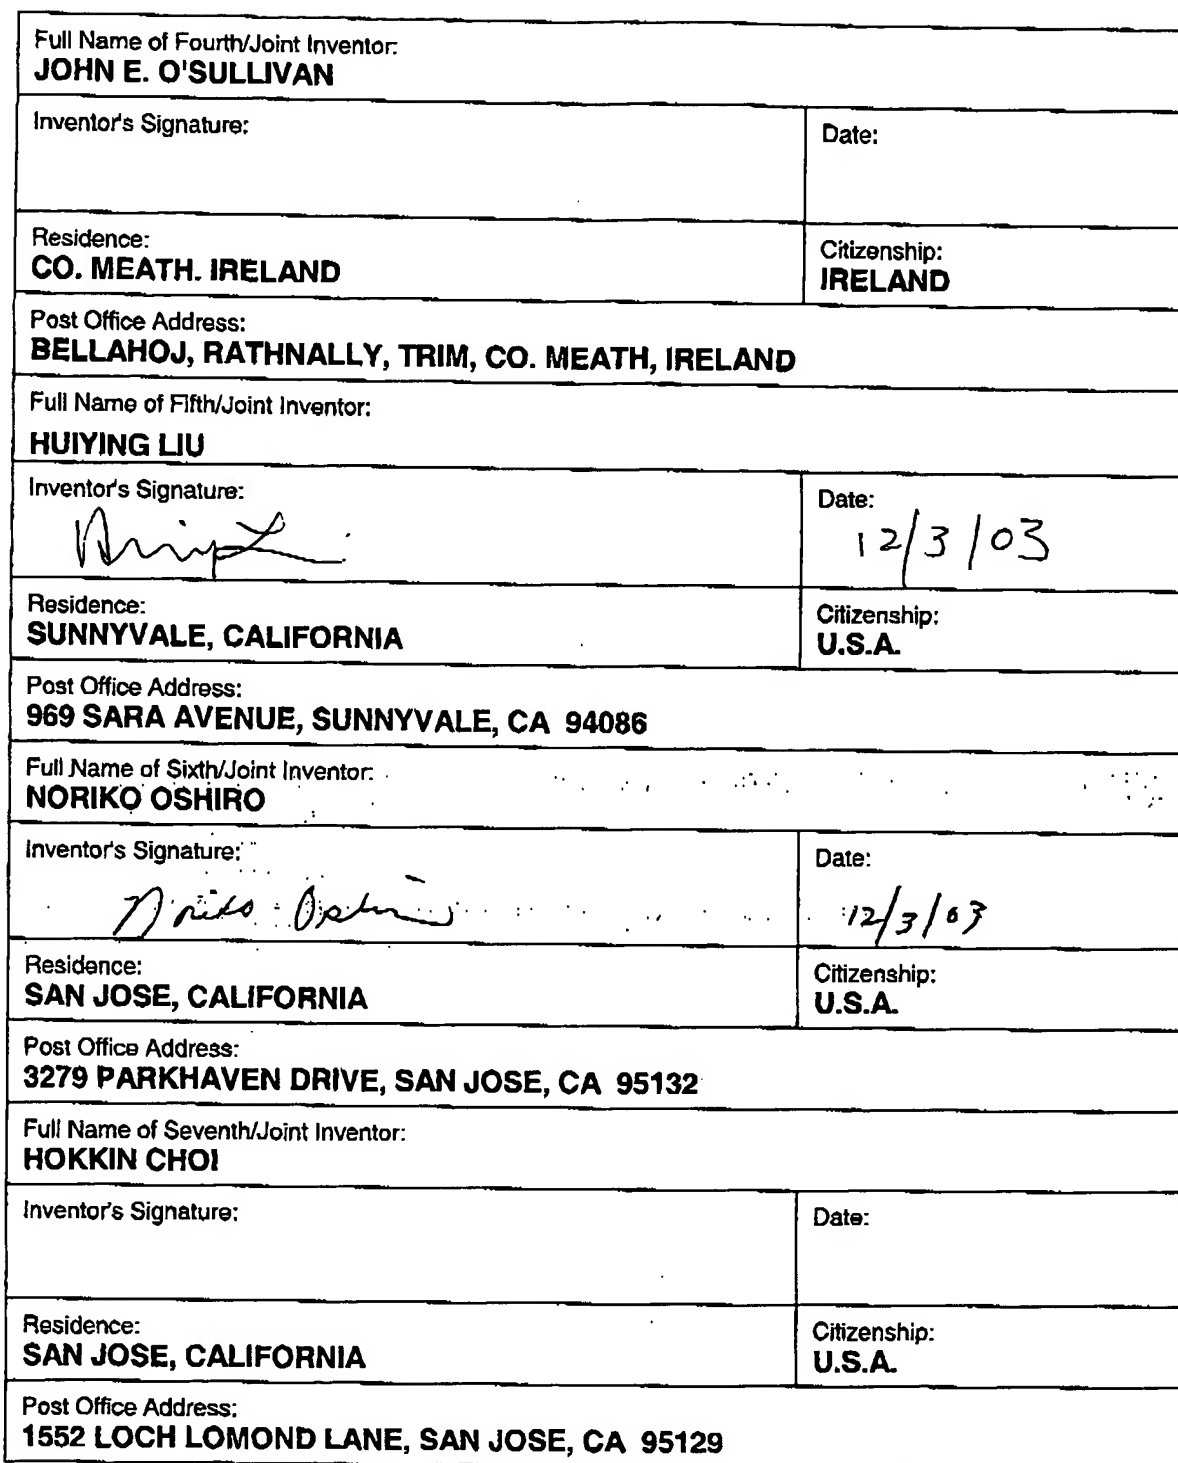 Full Name of Fourth/Joint Inventor:
JOHN E. O'SULLIVAN
Inventor's Signature:
Date:
Residence:
CO. MEATH. IRELAND
Citizenship:
IRELAND
Post Office Address:
BELLAHOJ, RATHNALLY, TRIM, CO. MEATH, IRELAND
Full Name of Fifth/Joint Inventor:
HUIYING LIU
Inventor's Signature:
Date:
12/3/03
Residence:
SUNNYVALE, CALIFORNIA
Citizenship:
U.S.A.
Post Office Address:
969 SARA AVENUE, SUNNYVALE, CA 94086
Full Name of Sixth/Joint Inventor:
NORIKO OSHIRO
Inventor's Signature:
Noriko Oshiro
Date:
12/3/03
Residence:
SAN JOSE, CALIFORNIA
Citizenship:
U.S.A.
Post Office Address:
3279 PARKHAVEN DRIVE, SAN JOSE, CA 95132
Full Name of Seventh/Joint Inventor:
HOKKIN CHOI
Inventor's Signature:
Date:
Residence:
SAN JOSE, CALIFORNIA
Citizenship:
U.S.A.
Post Office Address:
1552 LOCH LOMOND LANE, SAN JOSE, CA 95129